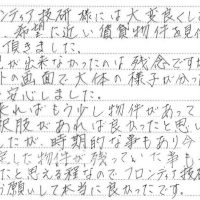 ンティア技研様には大変良くし
、希望に近い賃貸物件を見
て頂きました。
見が出来なかったのは残念ですが
トの画面で大体の様子が分っ
安心しました。
来ればもう少し物件があって
択肢があれば良かったと思い
したが、時期的な事もあり今
定した物件が残っていた事も
たと思える程なので、フロンティア技
お願いして本当に良かったです。